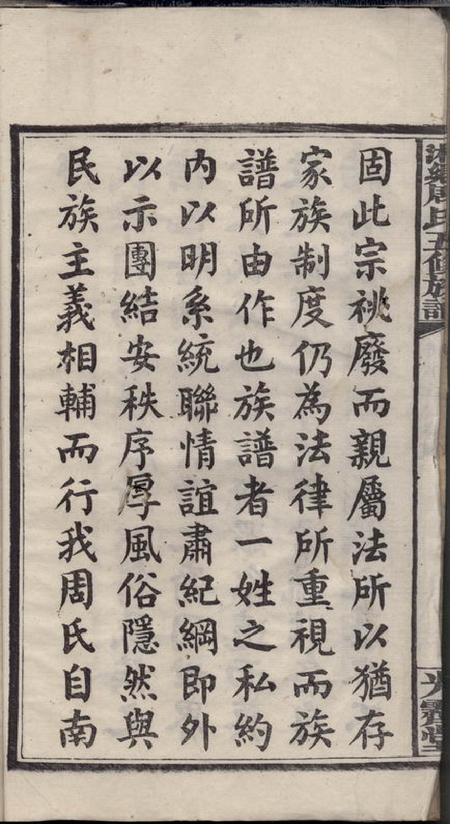 湘鄉周氏五修族譜
光霽堂
固此宗祧廢而親屬法所以猶存
家族制度仍為法律所重視而族
譜所由作也族譜者一姓之私約
內以明系統聯情誼肅紀綱即外
以示團結安秩序厚風俗隱然與
民族主義相輔而行我周氏自南